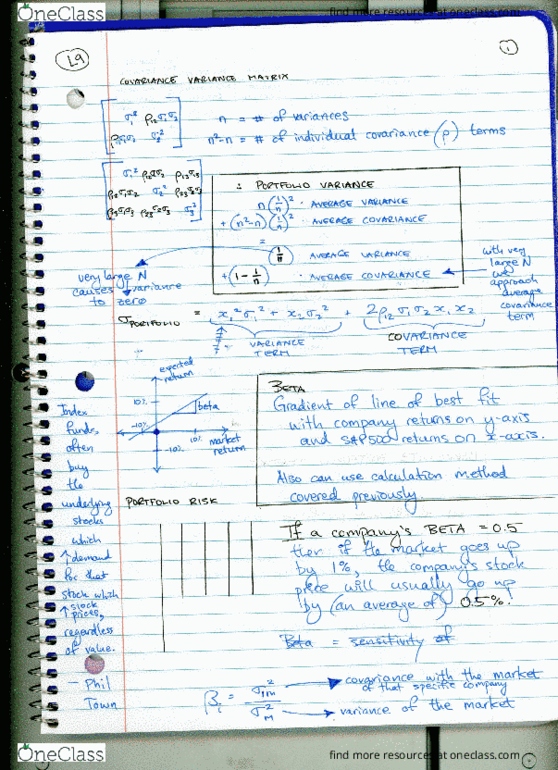 OneClass
find more resources at oneclass.com
L9
1
COVARIANCE VARIANCE MATRIX
σ₁² ρ₁₂σ₁σ₂
ρ₁₂σ₁σ₂ σ₂²
n = # of variances
n²-n = # of individual covariance (ρ) terms
σ₁² ρ₁₂σ₁σ₂ ρ₁₃σ₁σ₃
ρ₁₂σ₁σ₂ σ₂² ρ₂₃σ₂σ₃
ρ₁₃σ₁σ₃ ρ₂₃σ₂σ₃ σ₃²
∴ PORTFOLIO VARIANCE
n(1/n)² · AVERAGE VARIANCE
+ (n²-n)(1/n)² · AVERAGE COVARIANCE
=
(1/n) · AVERAGE VARIANCE
+ (1 - 1/n) · AVERAGE COVARIANCE
very large N
causes variance
to zero
with very
large N
we
approach
average
covariance
term
σPORTFOLIO = x₁²σ₁² + x₂σ₂² + 2ρ₁₂σ₁σ₂x₁x₂
VARIANCE
TERM
COVARIANCE
TERM
expected
return
10%
-10%
beta
10%
-10%
market
return
BETA
Gradient of line of best fit
with company returns on y-axis
and S&P500 returns on x-axis.
Also can use calculation method
covered previously.
Index
funds
often
buy
the
underlying
stocks
which
↑ demand
for that
stock which
↑ stock
prices,
regardless
of value.
- Phil
Town
PORTFOLIO RISK
If a company's BETA = 0.5
then if the market goes up
by 1%, the company's stock
price will usually go up
by (an average of) 0.5%!
Beta = sensitivity of
βᵢ = σᵢₘ² / σₘ²
covariance with the market
of that specific company
variance of the market
OneClass
find more resources at oneclass.com